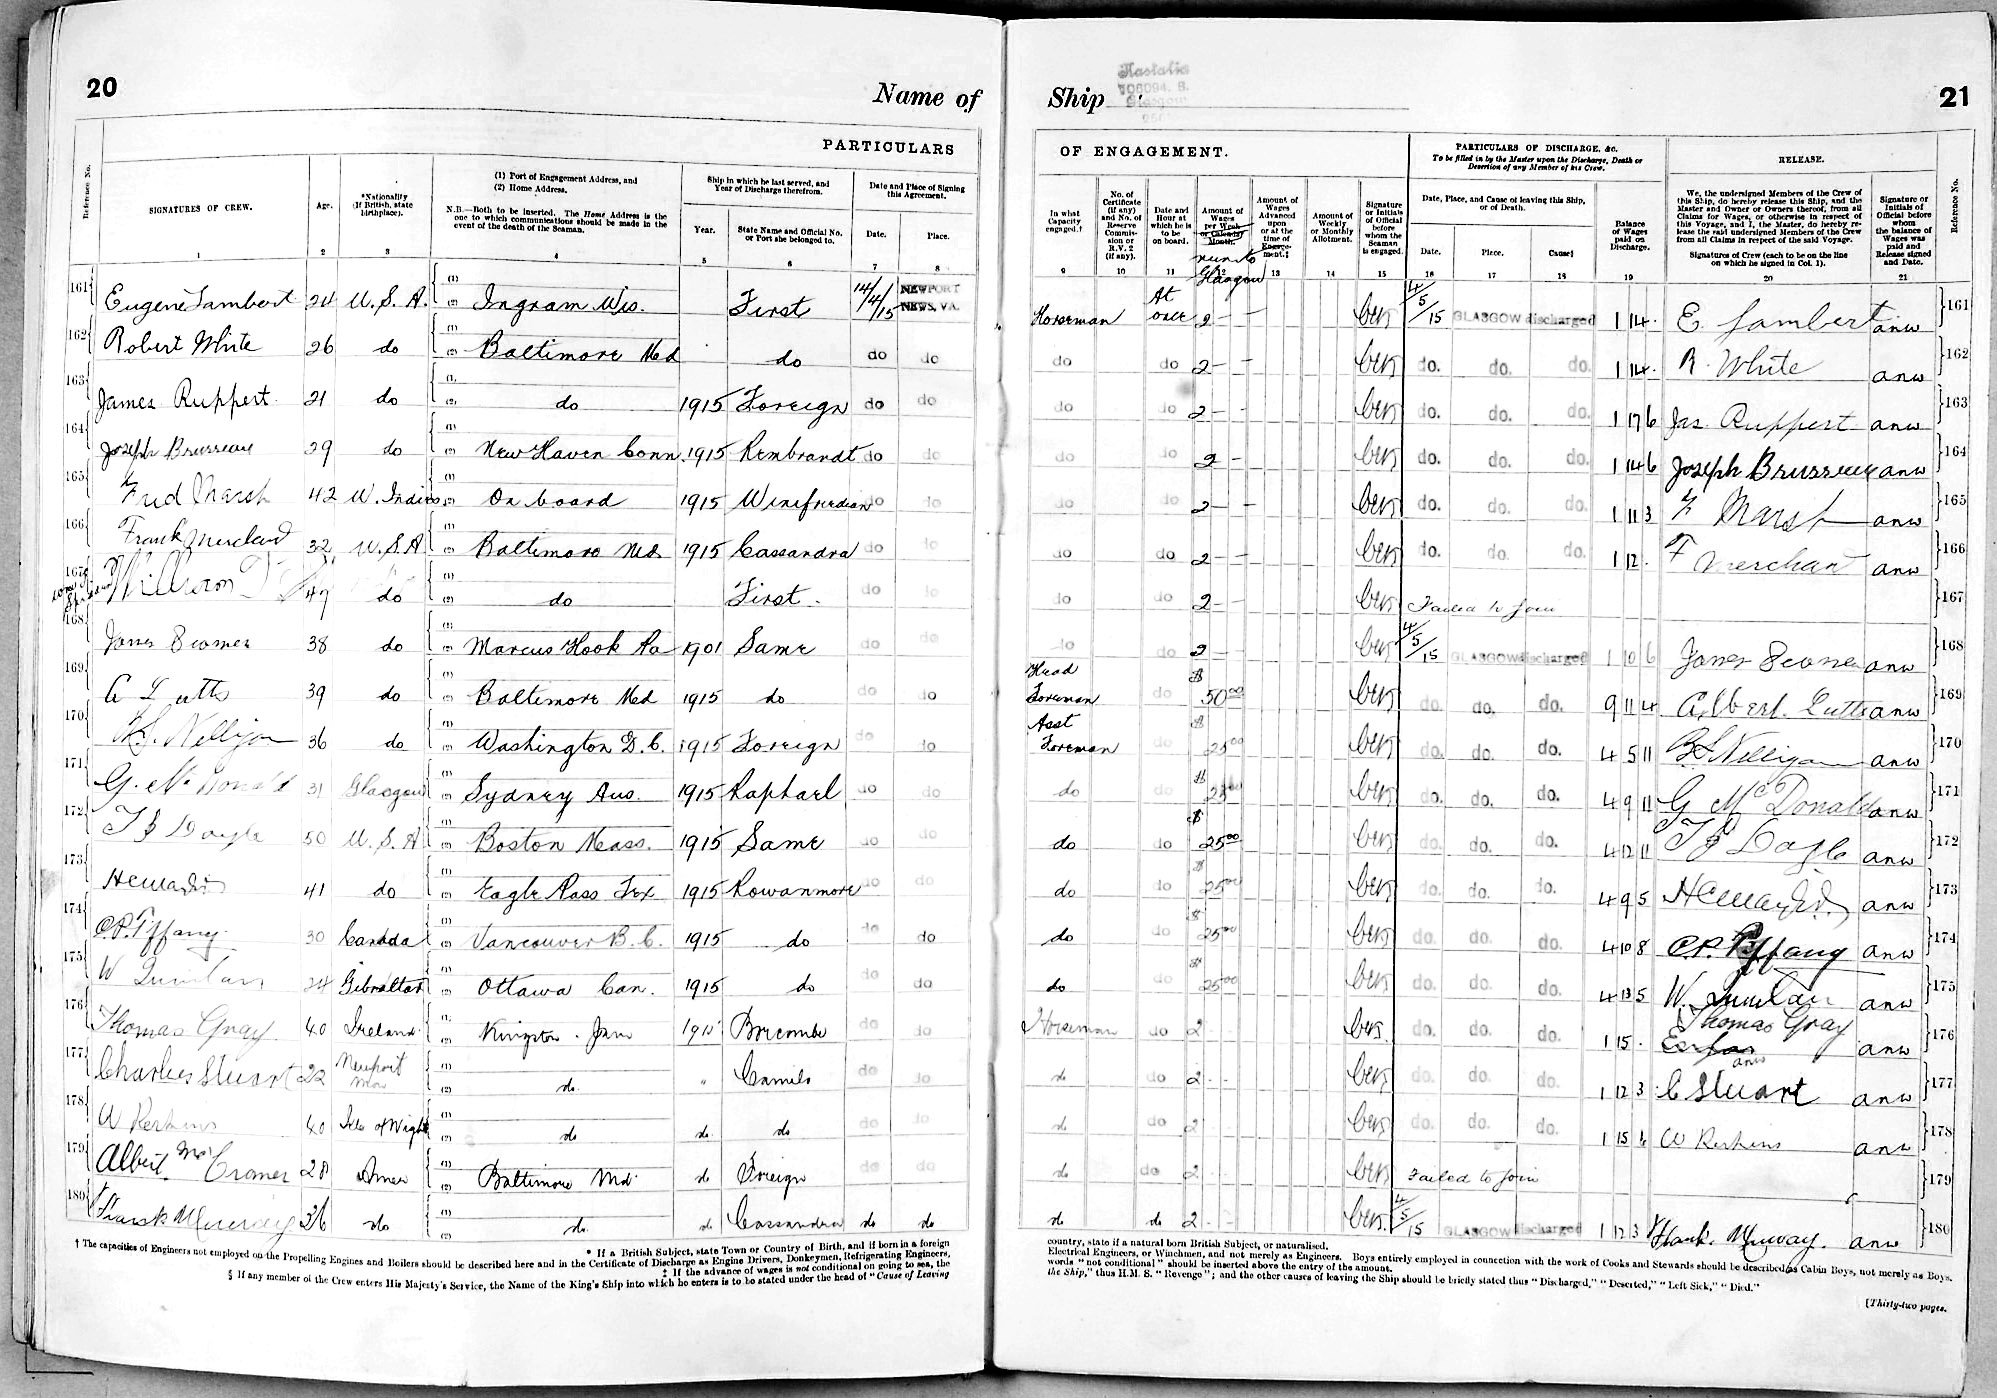 20
Name of
Ship
106094. B.
Glasgow
21
PARTICULARS
OF ENGAGEMENT.
PARTICULARS OF DISCHARGE, &c.
To be filled in by the Master upon the Discharge, Death or Desertion of any Member of his Crew.
RELEASE.
Reference No.
SIGNATURES OF CREW.
Age.
*Nationality (If British, state birthplace).
(1) Port of Engagement Address, and
(2) Home Address.
N.B.—Both to be inserted. The Home Address is the one to which communications should be made in the event of the death of the Seaman.
Ship in which he last served, and Year of Discharge therefrom.
Year.
State Name and Official No. or Port she belonged to.
Date and Place of Signing this Agreement.
Date.
Place.
In what Capacity engaged.†
No. of Certificate (if any) and No. of Reserve Commission or R.V. 2 (if any).
Date and Hour at which he is to be on board.
Amount of Wages per Week or Calendar Month.
run to Glasgow
Amount of Wages Advanced upon or at the time of Engagement.‡
Amount of Weekly or Monthly Allotment.
Signature or Initials of Official before whom the Seaman is engaged.
Date, Place, and Cause of leaving this Ship, or of Death.
Date.
Place.
Cause§
Balance of Wages paid on Discharge.
We, the undersigned Members of the Crew of this Ship, do hereby release this Ship, and the Master and Owner or Owners thereof, from all Claims for Wages, or otherwise in respect of this Voyage, and I, the Master, do hereby release the said undersigned Members of the Crew from all Claims in respect of the said Voyage.
Signatures of Crew (each to be on the line on which he signed in Col. 1).
Signature or Initials of Official before whom the balance of Wages was paid and Release signed and Date.
Reference No.
1 2 3 4 5 6 7 8 9 10 11 12 13 14 15 16 17 18 19 20 21
161 Eugene Lambert 24 U.S.A. (1) (2) Ingram Wis. First 14/4/15 NEWPORT NEWS, VA. Horseman At once 2 - - 4/5/15 GLASGOW discharged 1 14 . E. Lambert anw 161
162 Robert White 26 do (1) (2) Baltimore Md do do do do do 2 - - do. do. do. 1 14 . R. White anw 162
163 James Ruppert 21 do (1) (2) do 1915 Foreign do do do do 2 - - do. do. do. 1 17 6 Jas Ruppert anw 163
164 Joseph Brusseau 29 do (1) (2) New Haven Conn. 1915 Rembrandt do do do do 2 - do. do. do. 1 14 6 Joseph Brusseau anw 164
165 Fred Marsh 42 W. Indies (1) (2) On board 1915 Winifredian do do do do 2 - - do. do. do. 1 11 3 F Marsh anw 165
166 Frank Merchant 32 U.S.A (1) (2) Baltimore Md. 1915 Cassandra do do do do 2 - - do. do. do. 1 12 . F Merchant anw 166
167 William 49 do (1) (2) do First. do do do do 2 - - Failed to join 167
168 James 38 do (1) (2) Marcus Hook Pa 1901 Same do do do do 2 - - 4/5/15 GLASGOW discharged 1 10 6 James anw 168
169 A Lutts 39 do (1) (2) Baltimore Md 1915 do do do Head Foreman do $ 50.00 do. do. do. 9 11 4 Albert. Lutts anw 169
170 36 do (1) (2) Washington D.C. 1915 Foreign do do Asst Foreman do $ 25.00 do. do. do. 4 5 11 anw 170
171 G. McDonald 31 Glasgow (1) (2) Sydney Aus. 1915 Raphael do do do do $ 25.00 do. do. do. 4 9 11 G McDonald anw 171
172 T J Doyle 50 U.S.A (1) (2) Boston Mass. 1915 Same do do do do $ 25.00 do. do. do. 4 12 11 T J Doyle anw 172
173 41 do (1) (2) Eagle Pass Tex 1915 Rowanmore do do do do $ 25.00 do. do. do. 4 9 5 anw 173
174 C.P. Tiffany 30 Canada (1) (2) Vancouver B.C. 1915 do do do do do $ 25.00 do. do. do. 4 10 8 C.P. Tiffany anw 174
175 W Quinlan 24 Gibraltar (1) (2) Ottawa Can. 1915 do do do do do $ 25.00 do. do. do. 4 13 5 W. Quinlan anw 175
176 Thomas Gray 40 Ireland (1) (2) Kingston. Jam 1915 Borcombe do do Horseman do 2 do. do. do. 1 15 . Thomas Gray anw anw 176
177 Charles Stuart 22 Newport Mon (1) (2) do. " Camito do do do do 2 - - do. do. do. 1 12 3 C Stuart anw 177
178 W Perkins 40 Isle of Wight (1) (2) do do. do do do do do 2 do. do. do. 1 15 6 W Perkins anw 178
179 Albert Cromer 28 Amer (1) (2) Baltimore Md. do Foreign do do do do 2 - - Failed to join 179
180 Frank Murray 36 do (1) (2) do. do Cassandra do do do do 2 - - 4/5/15 GLASGOW discharged 1 12 3 Frank. Murray. anw 180
† The capacities of Engineers not employed on the Propelling Engines and Boilers should be described here and in the Certificate of Discharge as Engine Drivers, Donkeymen, Refrigerating Engineers,
* If a British Subject, state Town or Country of Birth, and if born in a foreign
‡ If the advance of wages is not conditional on going to sea, the
§ If any member of the Crew enters His Majesty's Service, the Name of the King's Ship into which he enters is to be stated under the head of "Cause of Leaving
country, state if a natural born British Subject, or naturalised.
Electrical Engineers, or Winchmen, and not merely as Engineers. Boys entirely employed in connection with the work of Cooks and Stewards should be described as Cabin Boys, not merely as Boys.
words "not conditional" should be inserted above the entry of the amount.
the Ship," thus H.M. S. "Revenge"; and the other causes of leaving the Ship should be briefly stated thus "Discharged," "Deserted," "Left Sick," "Died."
[Thirty-two pages.